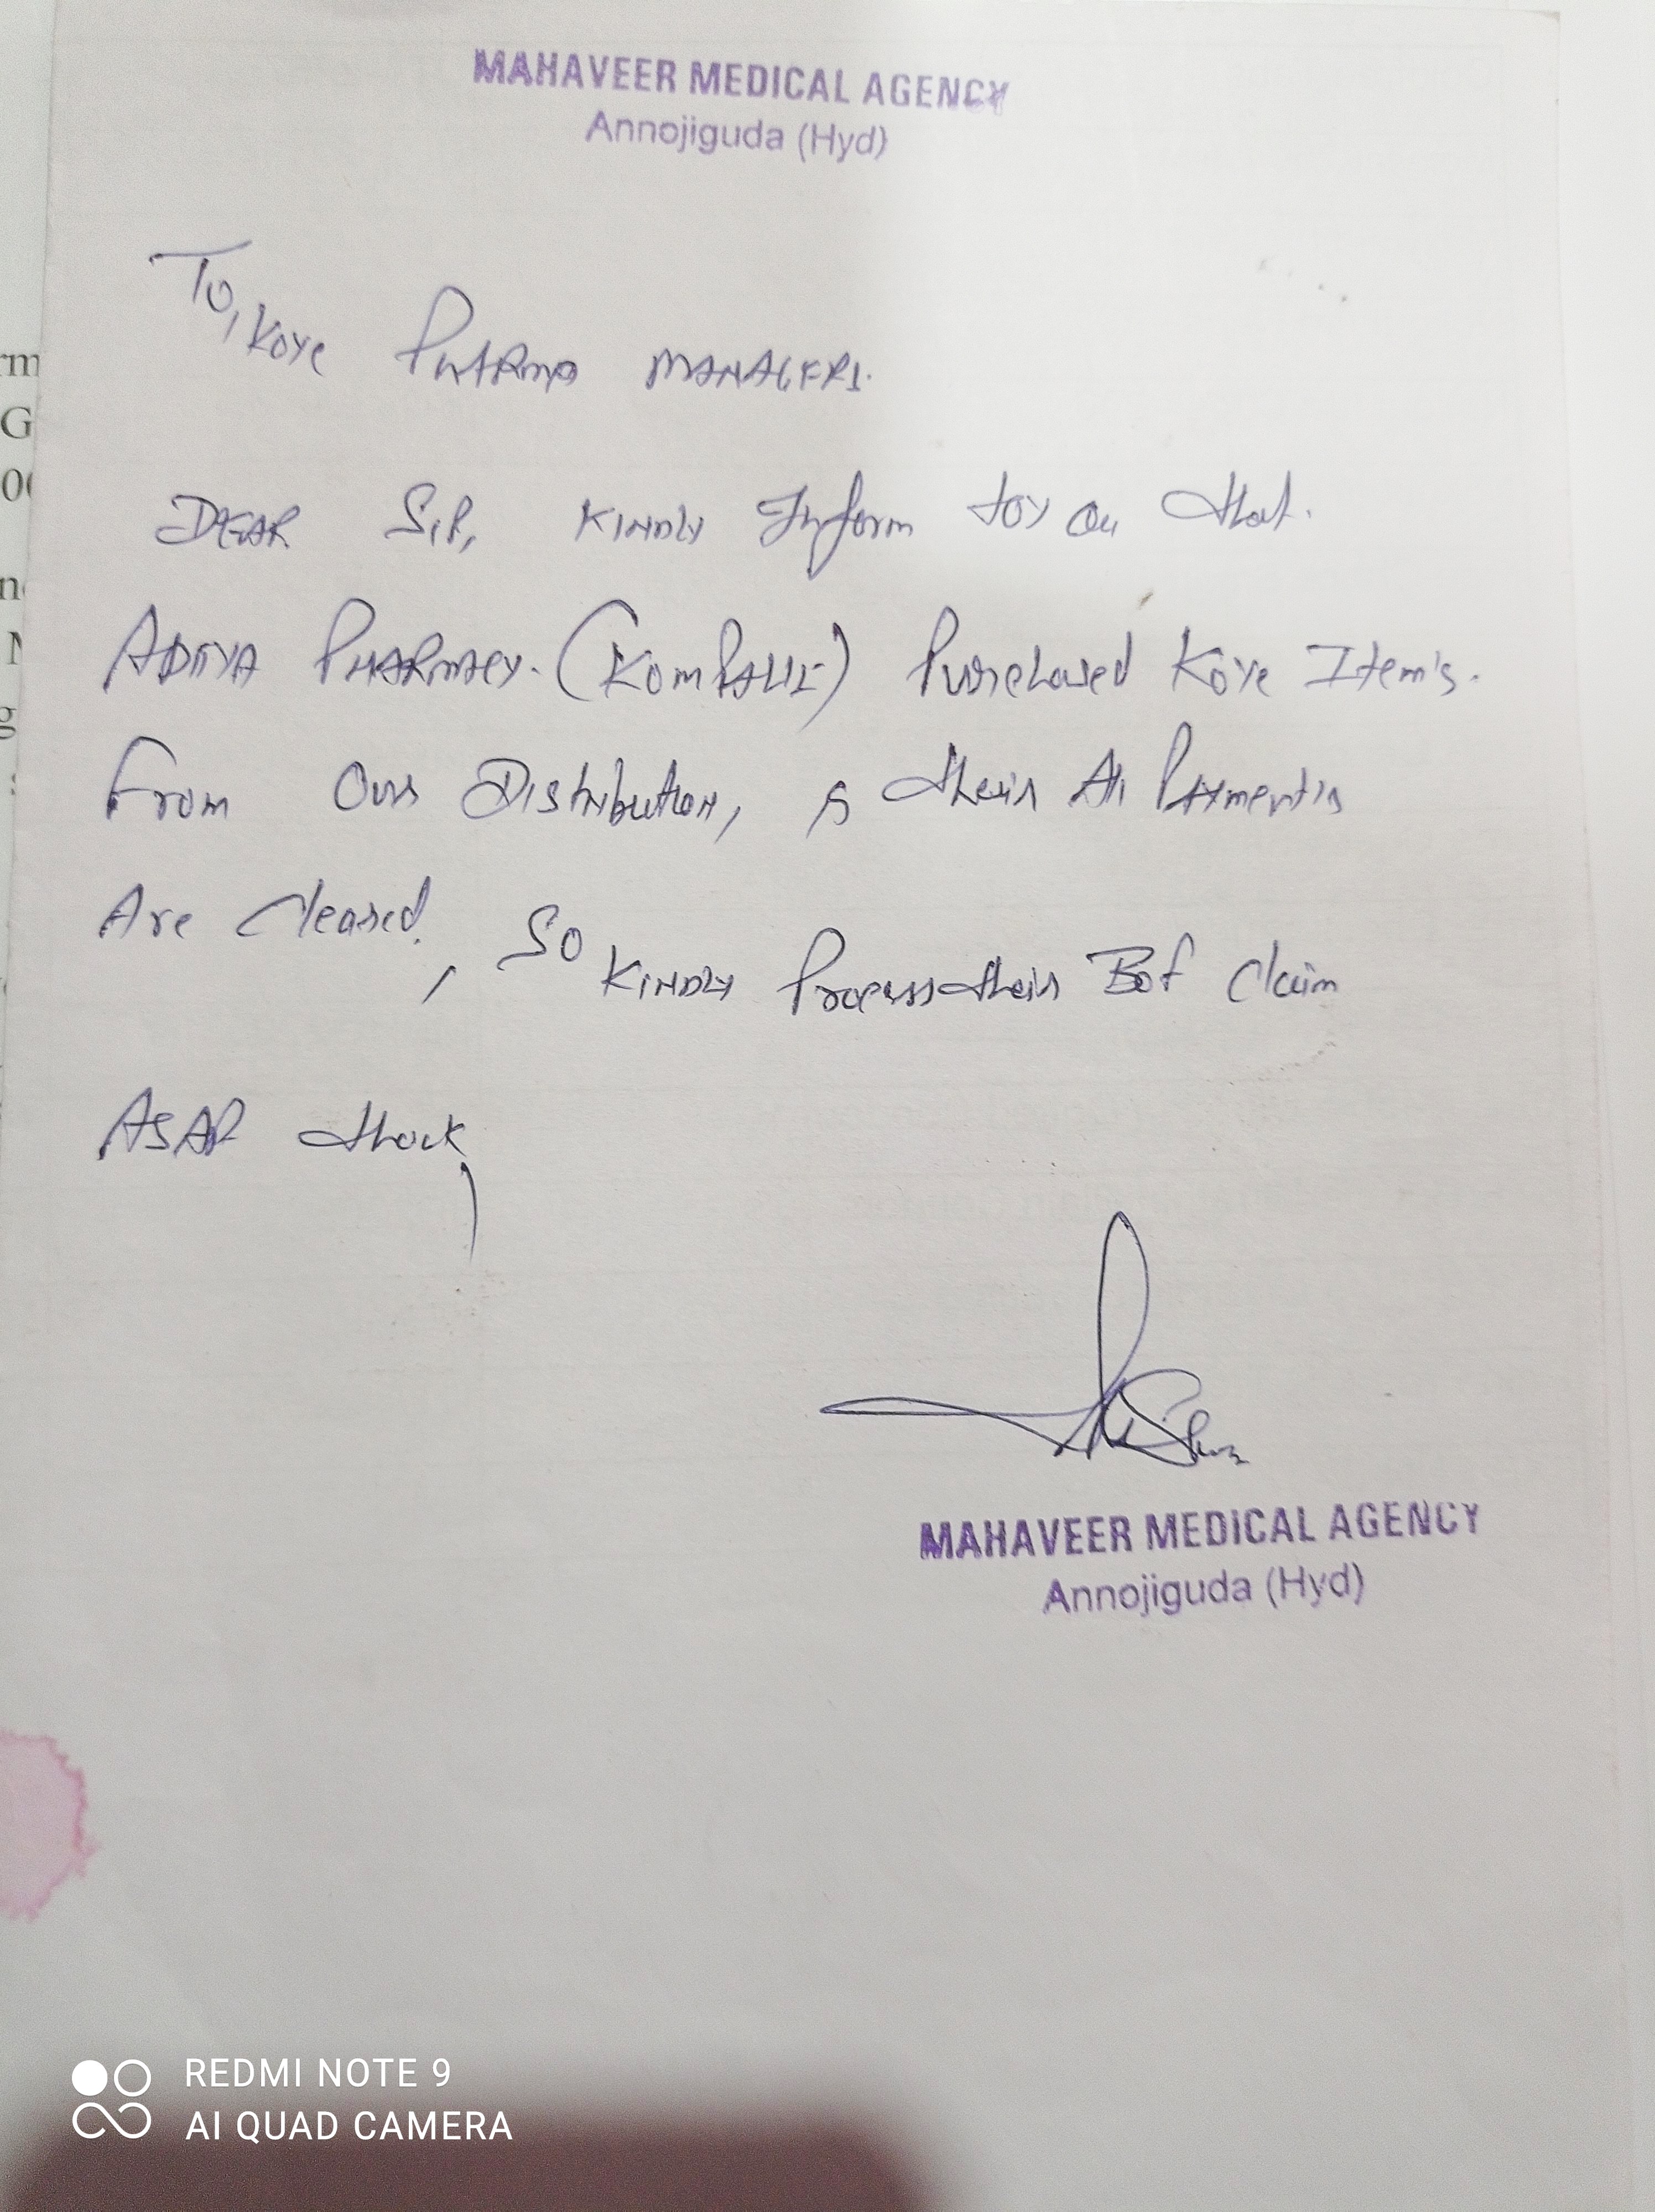 MAHAVEER MEDICAL AGENCY
Annojiguda (Hyd)
To,
Koye PHARMA MANAGER.
DEAR Sir, KINDLY Inform to you that.
ADITYA PHARMACY. (KOMPALLI) Purchased Koye Item's.
From Our Distribution, & their All Payments
Are Cleared, So KINDLY Process their Bof Claim
ASAP
MAHAVEER MEDICAL AGENCY
Annojiguda (Hyd)
rm
G
g
REDMI NOTE 9
AI QUAD CAMERA